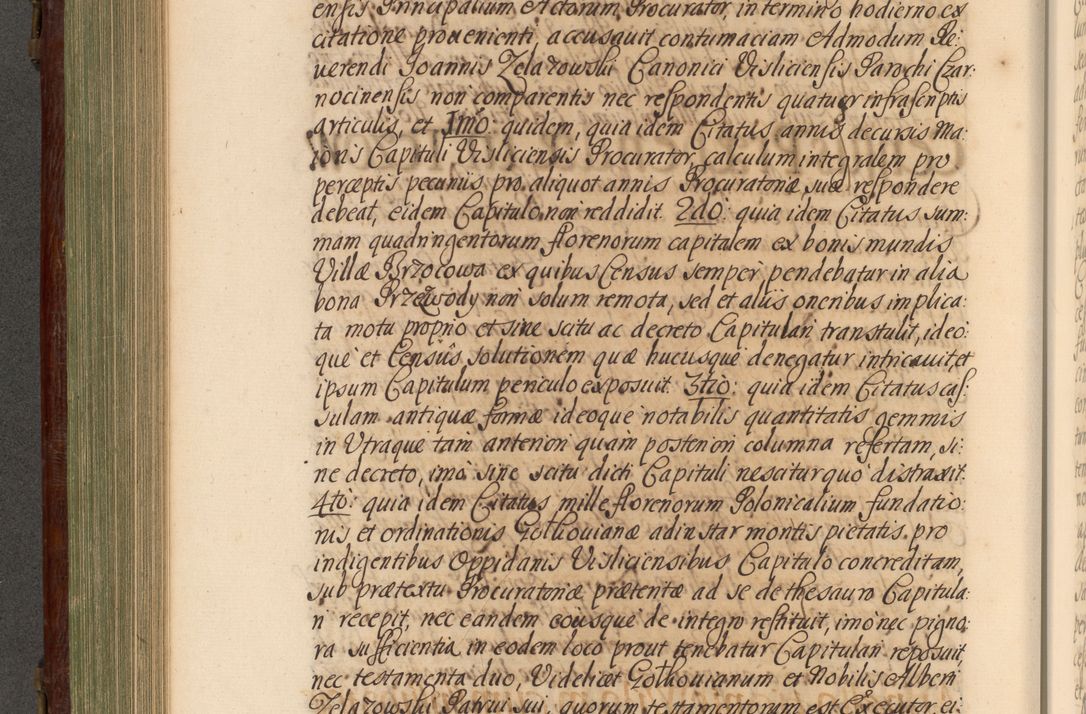 ensis Principalium Actorum Procurator, in termino hodierno ex
citatione provenienti accusavit contumaciam Admodum Re:
verendi Joannis Zelazowski Canonici Visliciensis Parochi Czar:
nocinensis non comparentis nec respondentis quatuor infrascriptis
articulis, et 1mo: quidem, quia idem Citatus annis decursis Ma:
ioris Capituli Visliciensis Procurator, calculum integralem pro
perceptis pecuniis pro aliquot annis Procuratoriæ suæ respondere
debeat, eidem Capitulo non reddidit. 2do: quia idem Citatus sum:
mam quadringentorum florenorum capitalem ex bonis mundis
Villæ Brzocowa ex quibus Census semper pendebatur in alia
bona Przewody non solum remota, sed et aliis oneribus implica:
ta motu proprio et sine scitu ac decreto Capitulari transtulit, ideo:
que et Censûs solutionem quæ hucusque denegatur intricavit, et
ipsum Capitulum periculo exposuit. 3tio: quia idem Citatus cas:
sulam antiquæ formæ ideoque notabilis quantitatis gemmis
in Utraque tam anteriori quam posteriori columna refertam, si:
ne decreto, imò sine scitu dicti Capituli nescitur quo distraxit.
4to: quia idem Citatus mille florenorum Polonicalium fundatio:
nis et ordinationis Golhovianæ ad instar montis pietatis pro
indigentibus Oppidanis Visliciensibus Capitulo concreditam,
sub prætextu Procuratoriæ prætentæ ad se de thesauro Capitula:
ri recepit, nec eandem eousque de integro restituit, imò nec pigno:
ra sufficientia in eodem loco prout tenebatur Capitulari reposuit,
nec testamenta duo, Videlicet Golhovianum et Nobilis Alberti
Zelazowski Patrui sui, quorum testamentorum est Executor, ei: